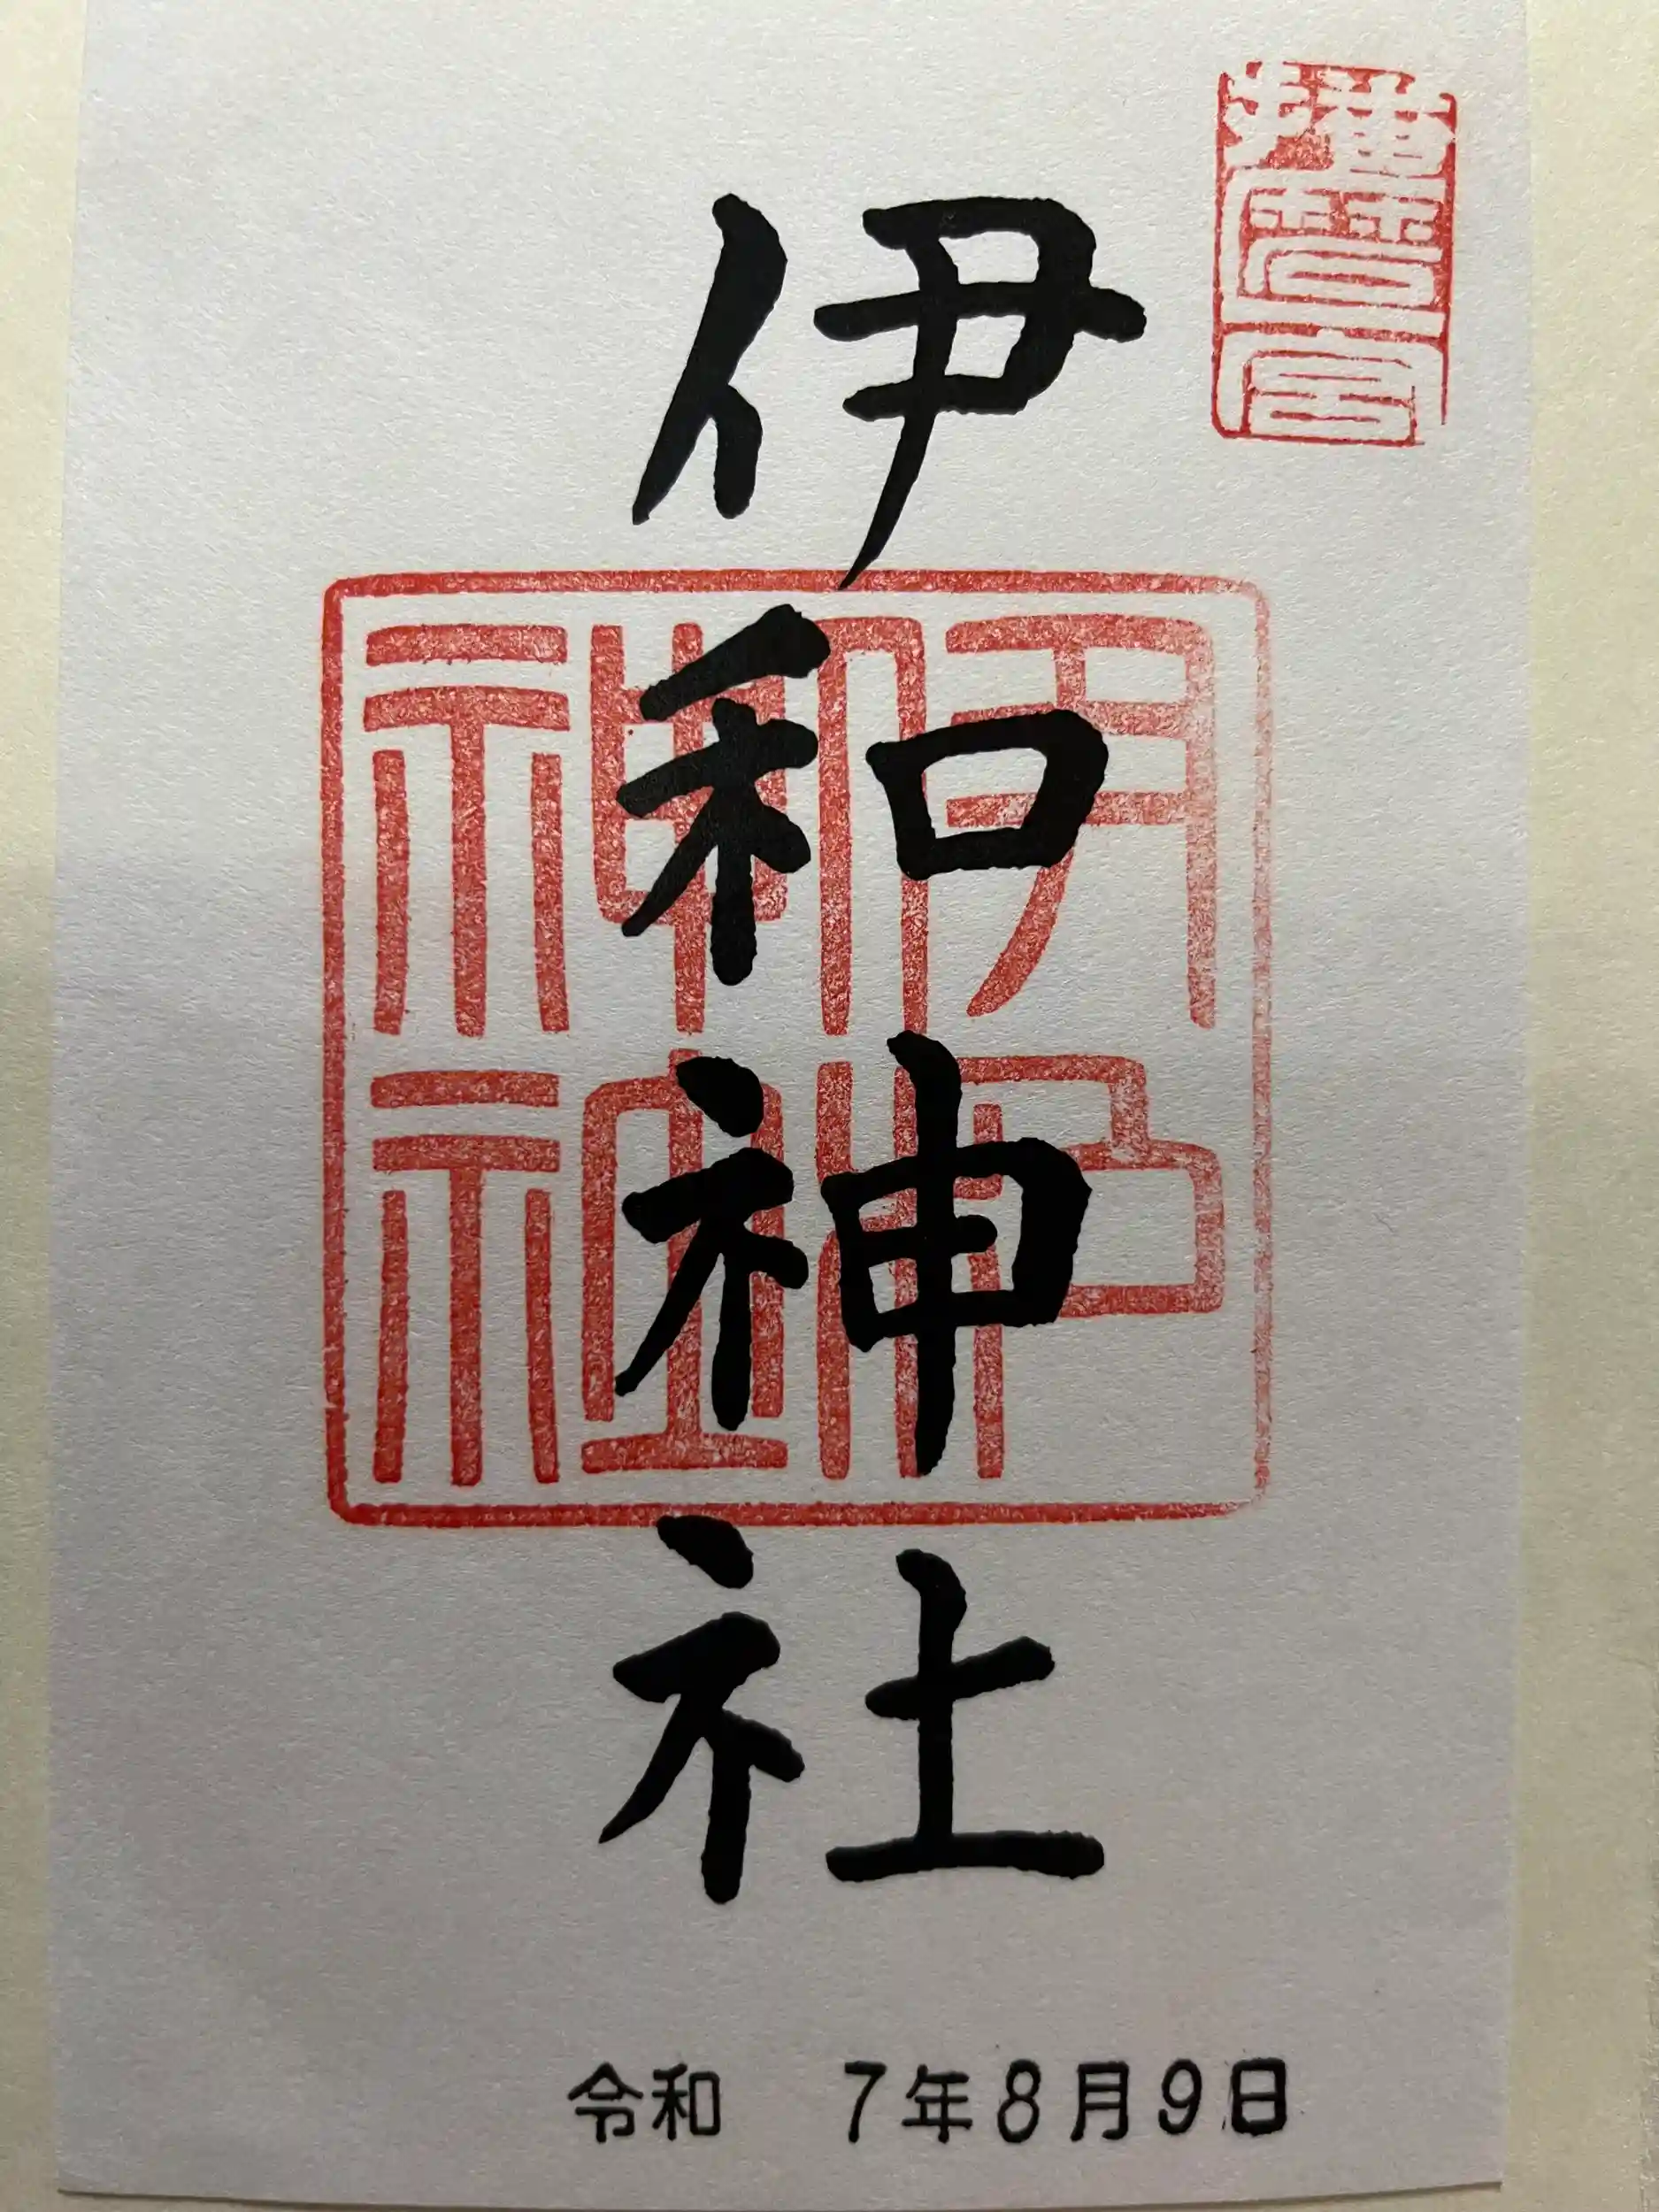 播磨一宮
伊和神社
伊和
神社
令和 7年8月9日